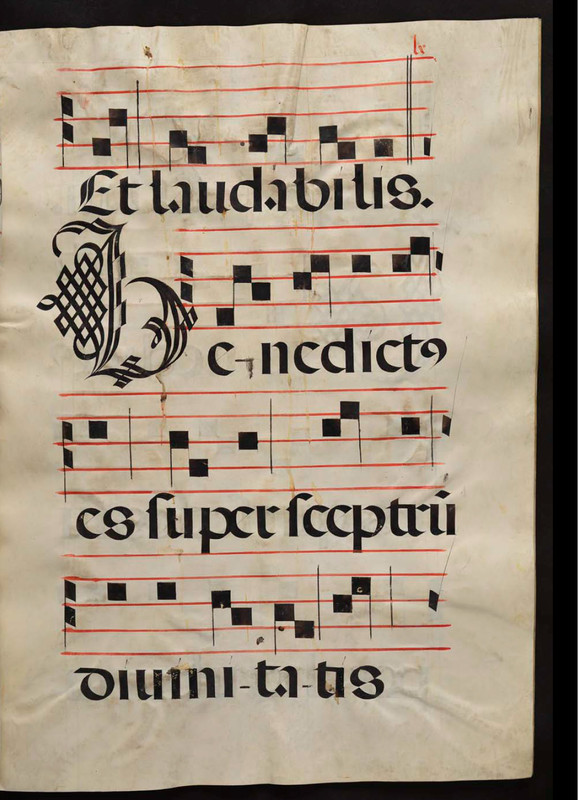 lx
Et laudabilis.
Be-nedictꝰ
es super sceptrū
diuini-ta-tis